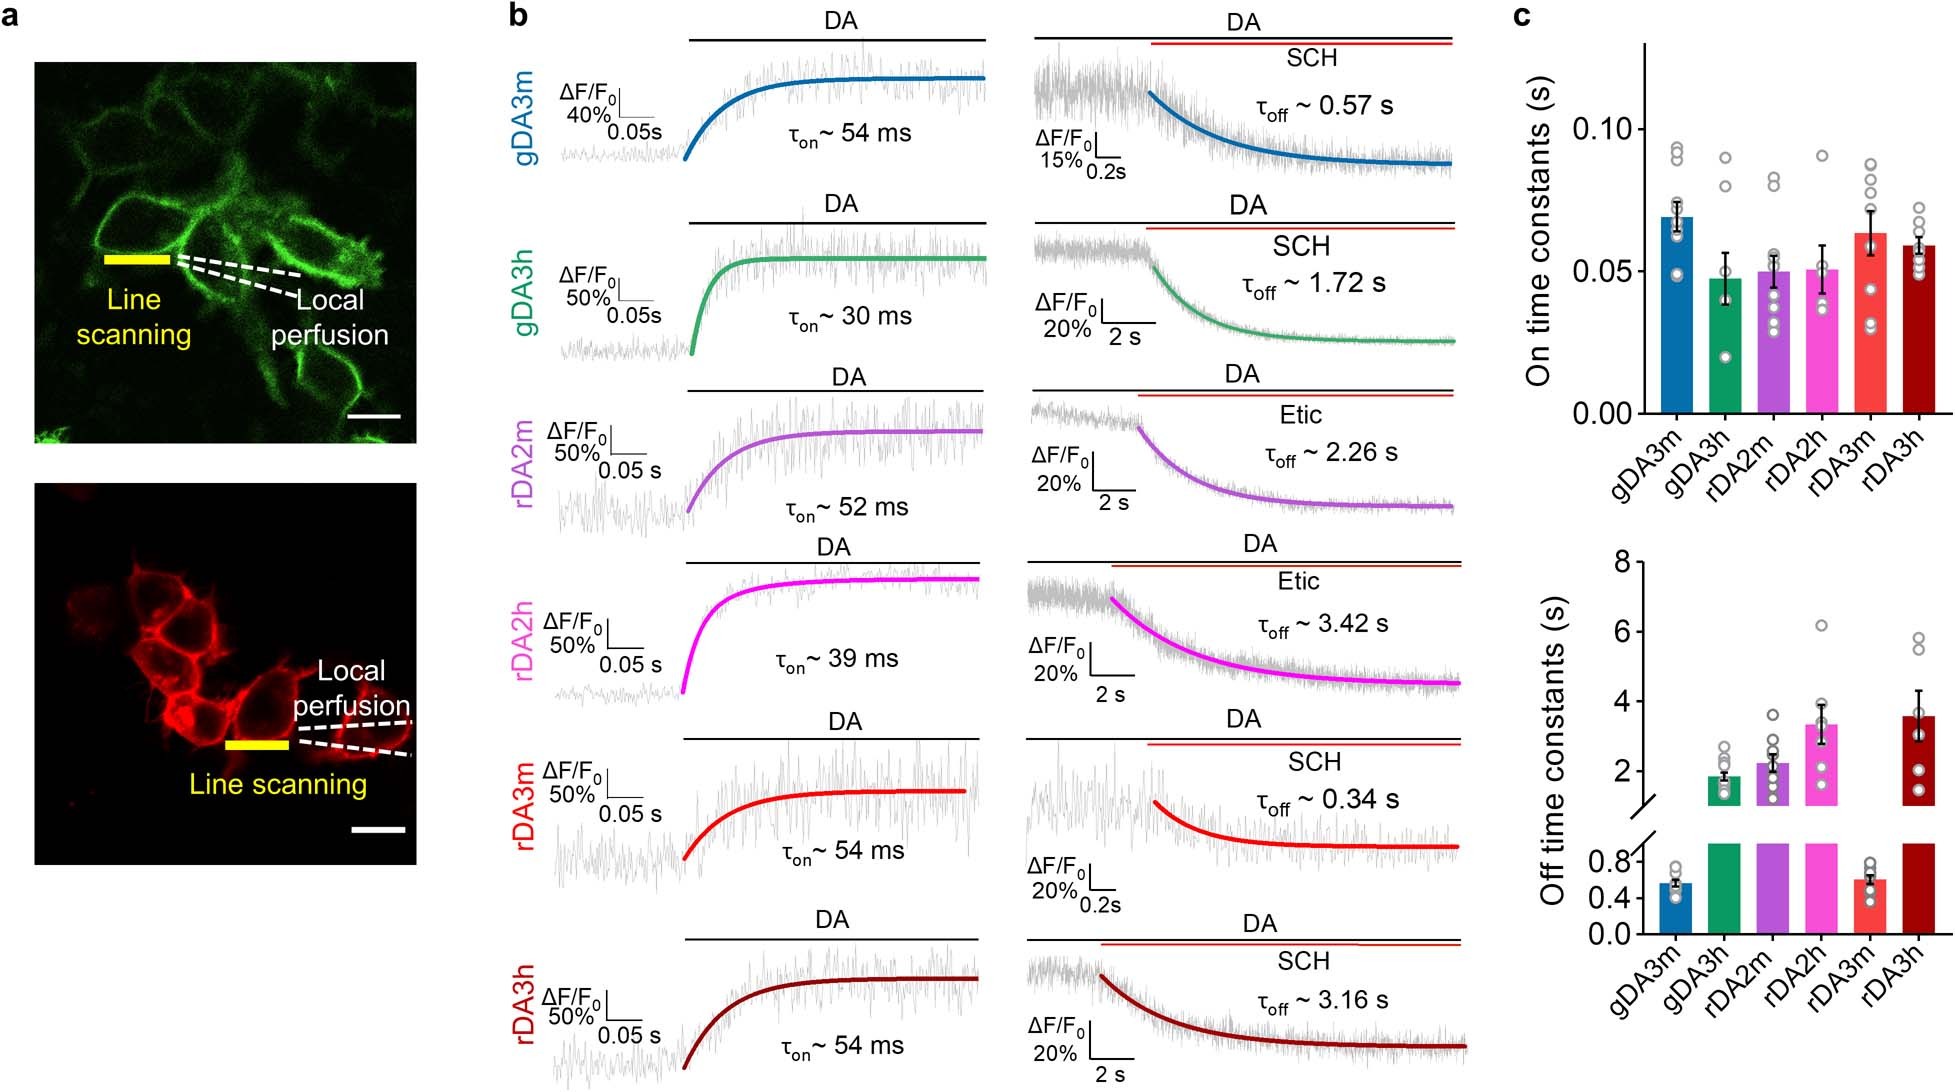 a
Line
scanning
Local
perfusion
Local
perfusion
Line scanning
b
gDA3m
DA
ΔF/F0
40%
0.05s
τon~ 54 ms
DA
SCH
τoff ~ 0.57 s
ΔF/F0
15%
0.2s
gDA3h
DA
ΔF/F0
50%
0.05s
τon~ 30 ms
DA
SCH
τoff ~ 1.72 s
ΔF/F0
20%
2 s
rDA2m
DA
ΔF/F0
50%
0.05 s
τon~ 52 ms
DA
Etic
τoff ~ 2.26 s
ΔF/F0
20%
2 s
rDA2h
DA
ΔF/F0
50%
0.05 s
τon~ 39 ms
DA
Etic
τoff ~ 3.42 s
ΔF/F0
20%
2 s
rDA3m
DA
ΔF/F0
50%
0.05 s
τon~ 54 ms
DA
SCH
τoff ~ 0.34 s
ΔF/F0
20%
0.2s
rDA3h
DA
ΔF/F0
50%
0.05 s
τon~ 54 ms
DA
SCH
τoff ~ 3.16 s
ΔF/F0
20%
2 s
c
On time constants (s)
0.10
0.05
0.00
gDA3m
gDA3h
rDA2m
rDA2h
rDA3m
rDA3h
Off time constants (s)
8
6
4
2
0.8
0.4
0.0
gDA3m
gDA3h
rDA2m
rDA2h
rDA3m
rDA3h